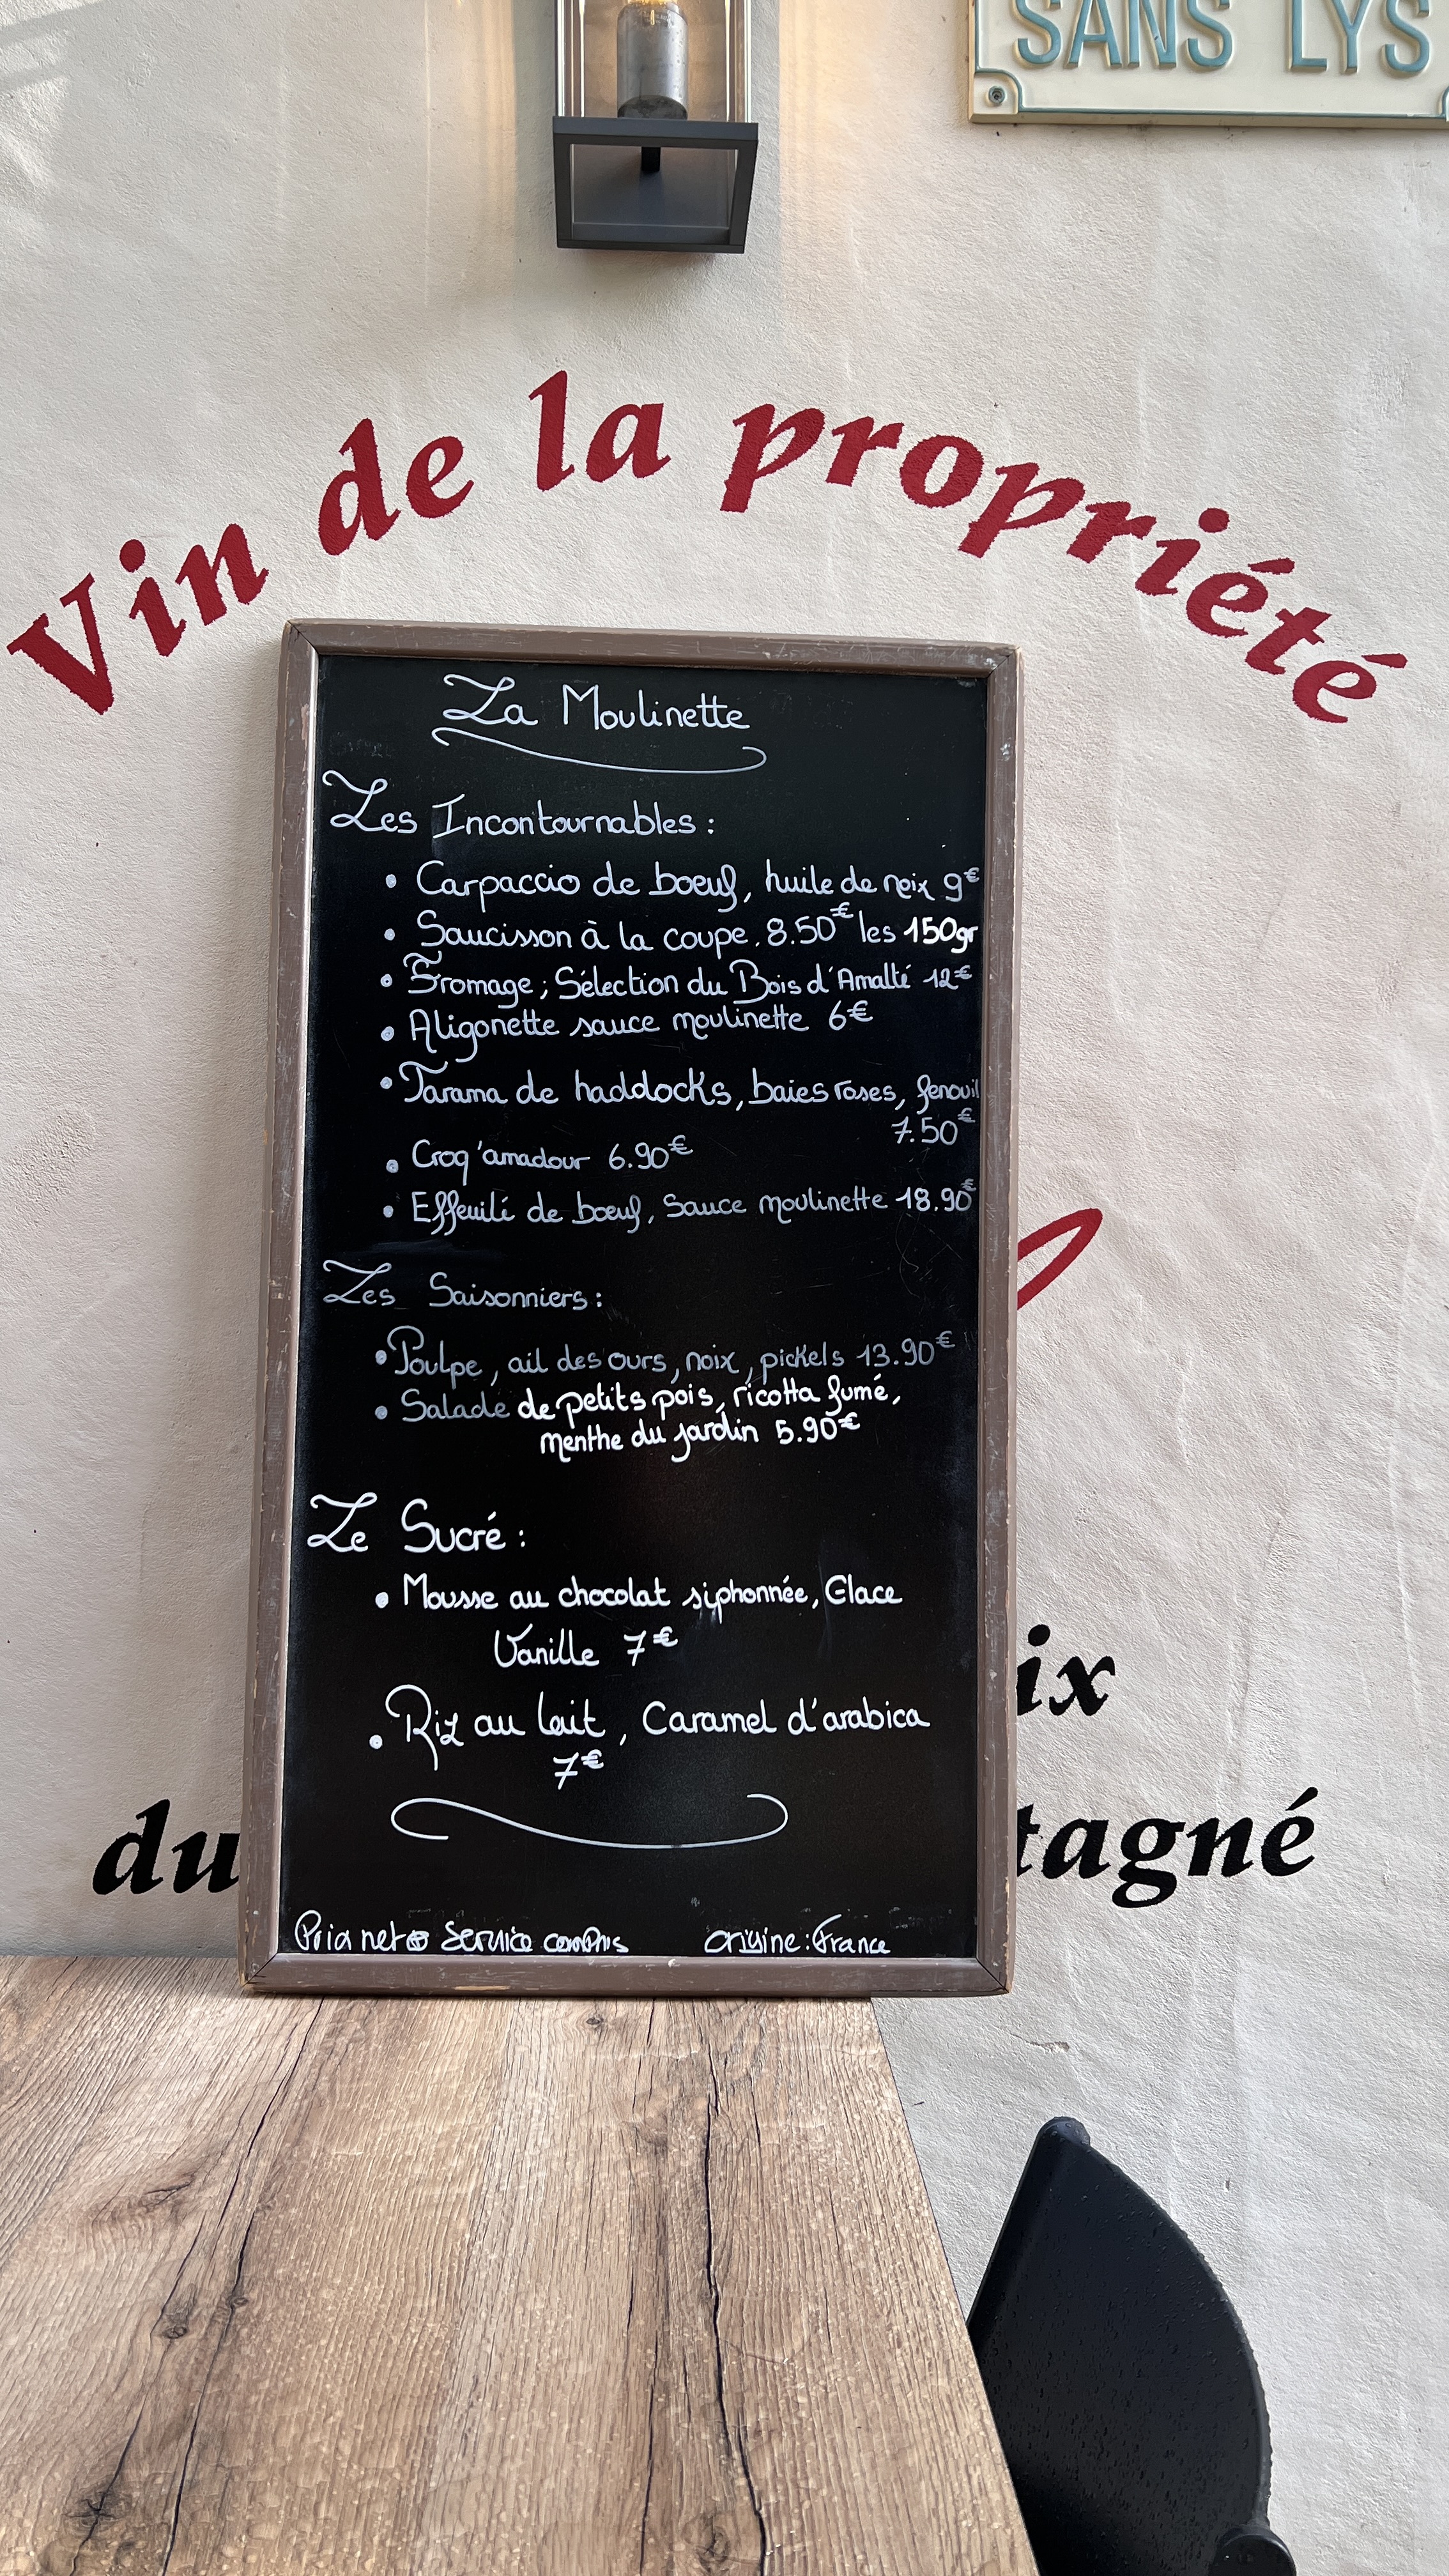 SANS LYS
Vin de la propriété
La Moulinette
Les Incontournables :
• Carpaccio de boeuf, huile de noix 9€
• Saucisson à la coupe. 8.50€ les 150gr
• Fromage ; Sélection du Bois d'Amalté 12€
• Aligonette sauce moulinette 6€
• Tarama de haddocks, baies roses, fenouil
7.50€
• Croq'amadour 6.90€
• Effeuilé de boeuf, Sauce moulinette 18.90€
Les Saisonniers :
• Poulpe, ail des ours, noix, pickels 13.90€
• Salade de petits pois, ricotta fumé,
menthe du jardin 5.90€
Le Sucré :
• Mousse au chocolat siphonnée, Glace
Vanille 7€
• Riz au lait, Caramel d'arabica
7€
ix
du tagné
Prix net Service compris origine : France